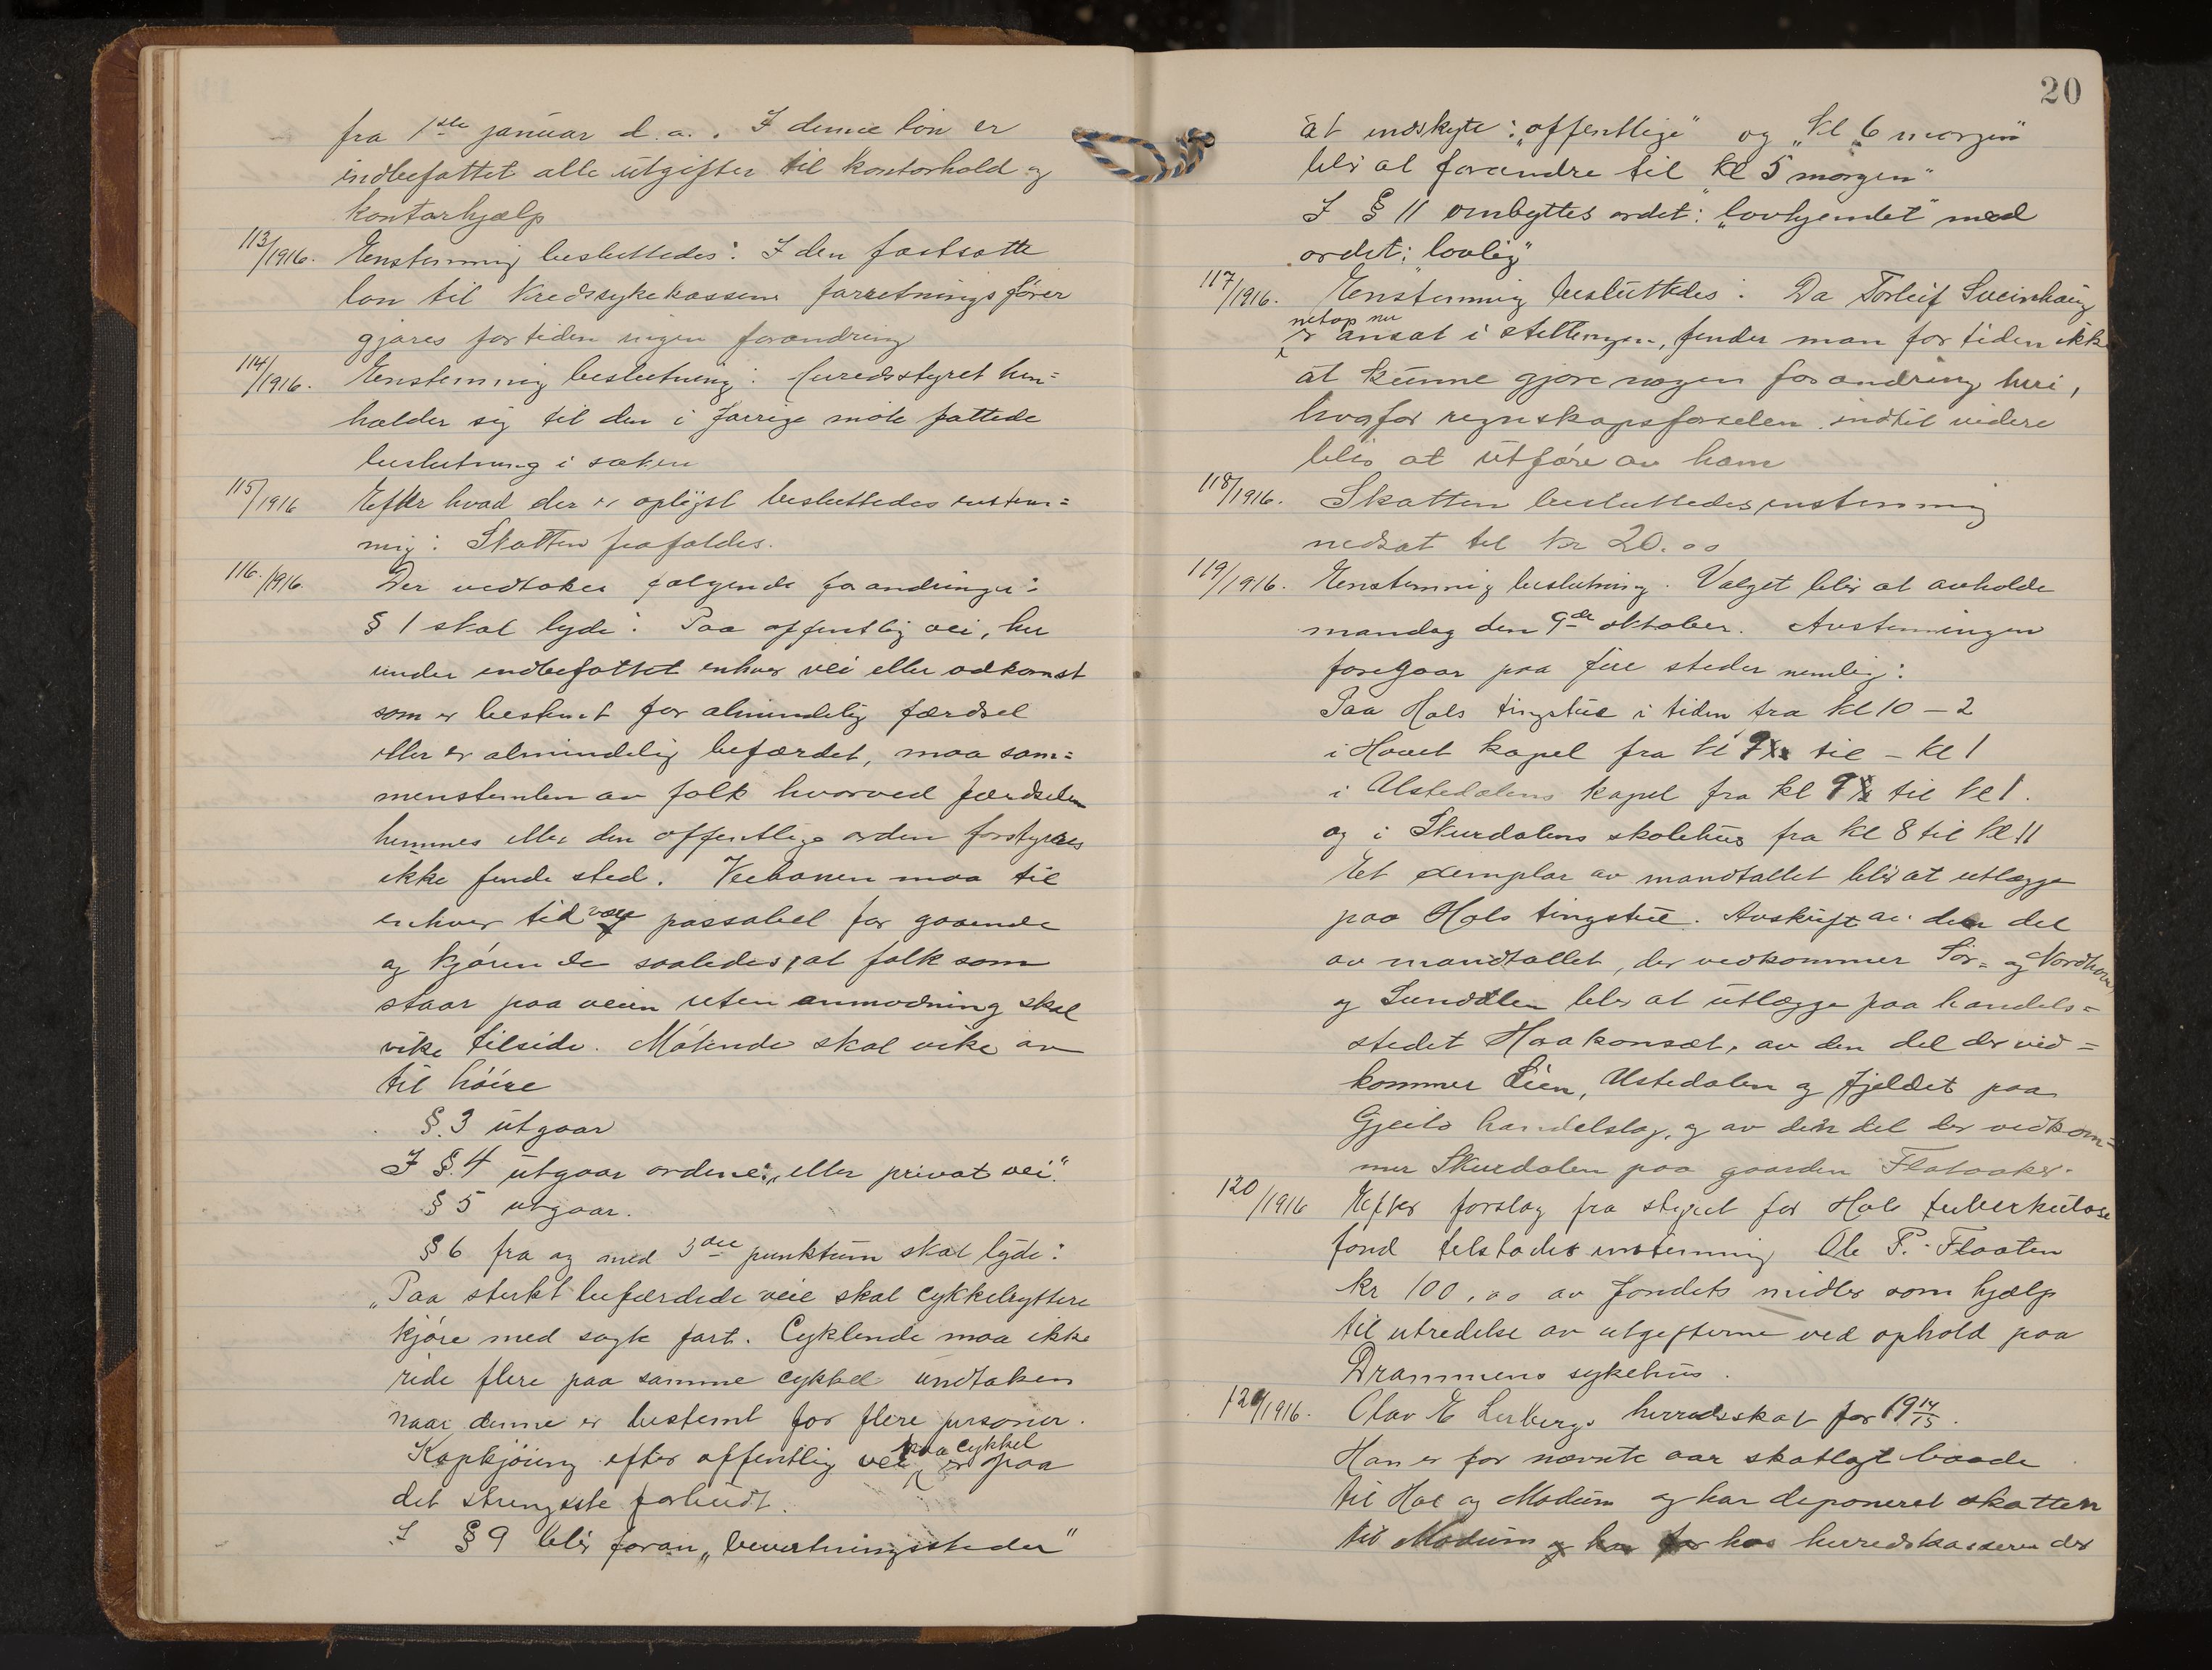 fra 1ste januar d.a.. I denne løn er
indbefattet alle utgifter til kontorhold og
kontorhjælp
113/1916. Enstemmig besluttedes: I den fastsatte
løn til kredssykekassens forretningsfører
gjøres for tiden ingen forandring
114/1916. Enstemmig beslutning: Herredsstyret hen=
holder sig til den i forrige møte fattede
beslutning i saken
115/1916 Efter hvad der er oplyst besluttedes enstem=
mig: Skatten frafaldes.
116./1916. Der vedtokes følgende forandringer:
§ 1 skal lyde: Paa offentlig vei, her
under indbefattet enhver vei eller adkomst
som er bestemt for almindelig færdsel
eller er almindelig befærdet, maa sam=
menstimlen av folk hvorved færdselen
hemmes eller den offentlige orden forstyrres
ikke finde sted. Veibanen maa til
enhver tid være passabel for gaaende
og kjørende saaledes, at folk som
staar paa veien uten anmodning skal
vike tilside. Møtende skal vike av
til høire
§ 3 utgaar
I § 4 utgaar ordene: „eller privat vei."
§ 5 utgaar.
§ 6 fra og med 3die punktum skal lyde:
„Paa sterkt befærdede veie skal cykkelryttere
kjøre med sagte fart. Cyklende maa ikke
ride flere paa samme cykkel undtaken
naar denne er bestemt for flere personer.
Kapkjøring efter offentlig vei paa cykkel er paa
det strengeste forbudt.
I § 9 blir foran „bevertningssteder"
20
at indskyte: „offentlige" og „Kl 6 morgen"
blir at forandre til „Kl 5 morgen"
I § 11 ombyttes ordet: „lovhjemlet" med
ordet: „lovlig"
117/1916. Enstemmig besluttedes: Da Torleif Sveinhaug
netop nu
er ansat i stillingen, finder man for tiden ikke
at kunne gjøre nogen forandring heri,
hvorfor regnskapsførselen indtil videre
blir at utføre av ham
118/1916. Skatten besluttedes enstemmig
nedsat til kr 20.00
119/1916. Enstemmig beslutning. Valget blir at avholde
mandag den 9de oktober. Avstemningen
foregaar paa fire steder nemlig:
Paa Hols tingstue i tiden fra kl 10 – 2
i Hovet kapel fra kl 9 til – kl 1
i Ustedalens kapel fra kl 9 til kl 1.
og i Skurdalens skolehus fra kl 8 til kl 11
Et exemplar av mandtallet blir at utlægge
paa Hols tingstue. Avskrift av den del
av mandtallet, der vedkommer Sør- og Nordhove
og Sunddlen blir at utlægge paa handels=
stedet Haakonsæt, av den del der ved=
kommer Lien, Ustedalen og fjeldet paa
Gjeilo handelslag, og av den del der vedkom=
mer Skurdalen paa gaarden Flataaker.
120/1916 Efter forslag fra styret for Hols tuberkulose
fond tilstodes enstemmig Ole P. Flaaten
kr 100,00 av fondets midler som hjælp
til utredelse av utgifterne ved ophold paa
Drammens sykehus.
120/1916. Olav E Lerbergs herredsskat for 1914/15.
Han er for nævnte aar skatlagt baade
til Hol og Modum og har deponeret skatten
til Modum hos herredskasseren der